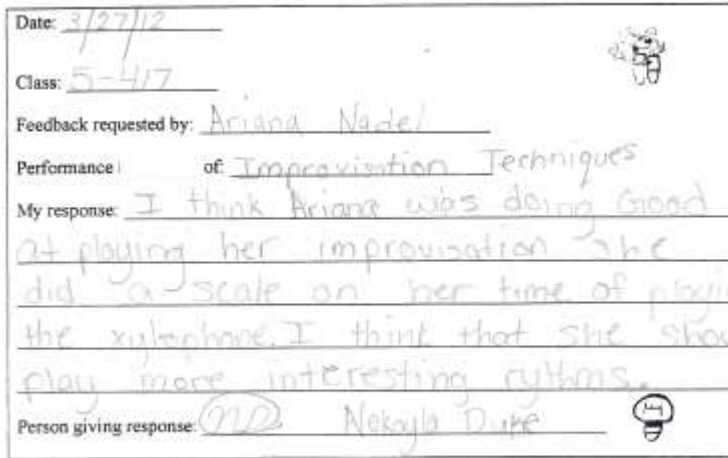 Date: 3/27/12
Class: 5-417
Feedback requested by: Ariana Nadel
Performance of: Improvisation Techniques
My response: I think Ariana was doing Good
at playing her improvisation She
did a scale on her time of playi
the xylophone. I think that she shou
play more interesting rythms.
Person giving response: Nekayla Duke